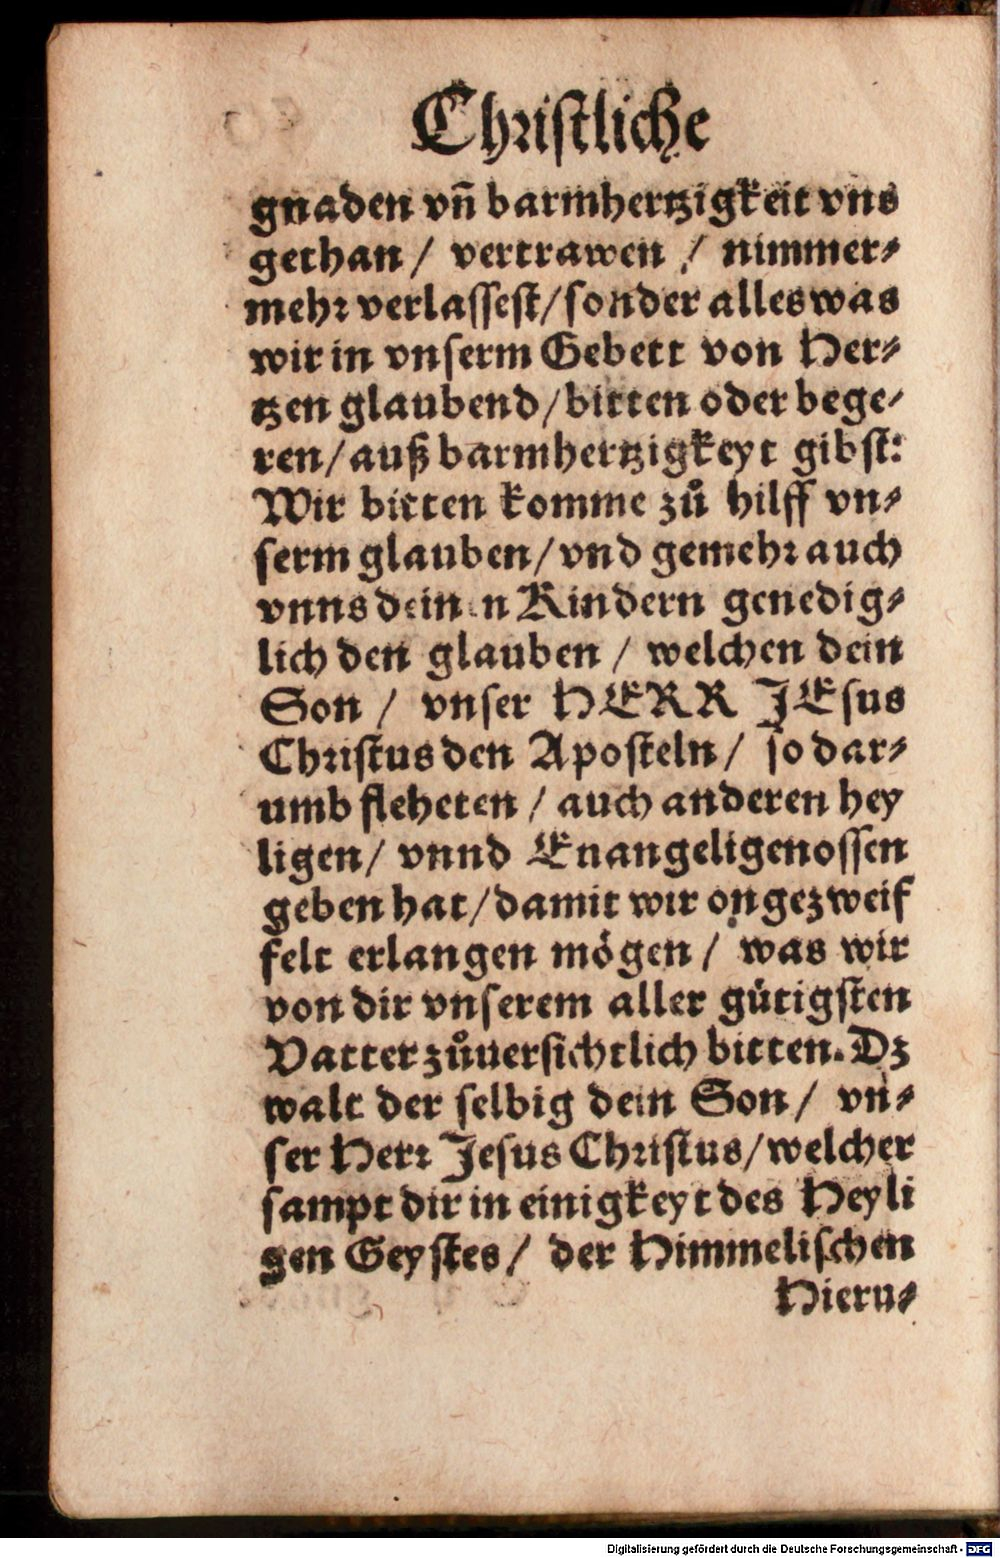 Christliche
gnaden vñ barmhertzigkeit vns
gethan / vertrawen / nimmer⸗
mehr verlassest/sonder alles was
wir in vnserm Gebett von Her⸗
tzen glaubend/bitten oder bege⸗
ren/auß barmhertzigkeyt gibst:
Wir bitten komme zů hilff vn⸗
serm glauben/vnd gemehr auch
vnns deinen Kindern genedig⸗
lich den glauben / welchen dein
Son / vnser HERR JEsus
Christus den Aposteln/ so dar⸗
umb fleheten / auch anderen hey
ligen/ vnnd Euangeligenossen
geben hat/damit wir ongezweif
felt erlangen mögen / was wir
von dir vnserem aller gütigsten
Vatter zůuersichtlich bitten. Dz
walt der selbig dein Son/ vn⸗
ser Herr Jesus Christus/welcher
sampt dir in einigkeyt des Heyli
gen Geystes/ der Himmelischen
Hieru⸗
Digitalisierung gefördert durch die Deutsche Forschungsgemeinschaft - DFG